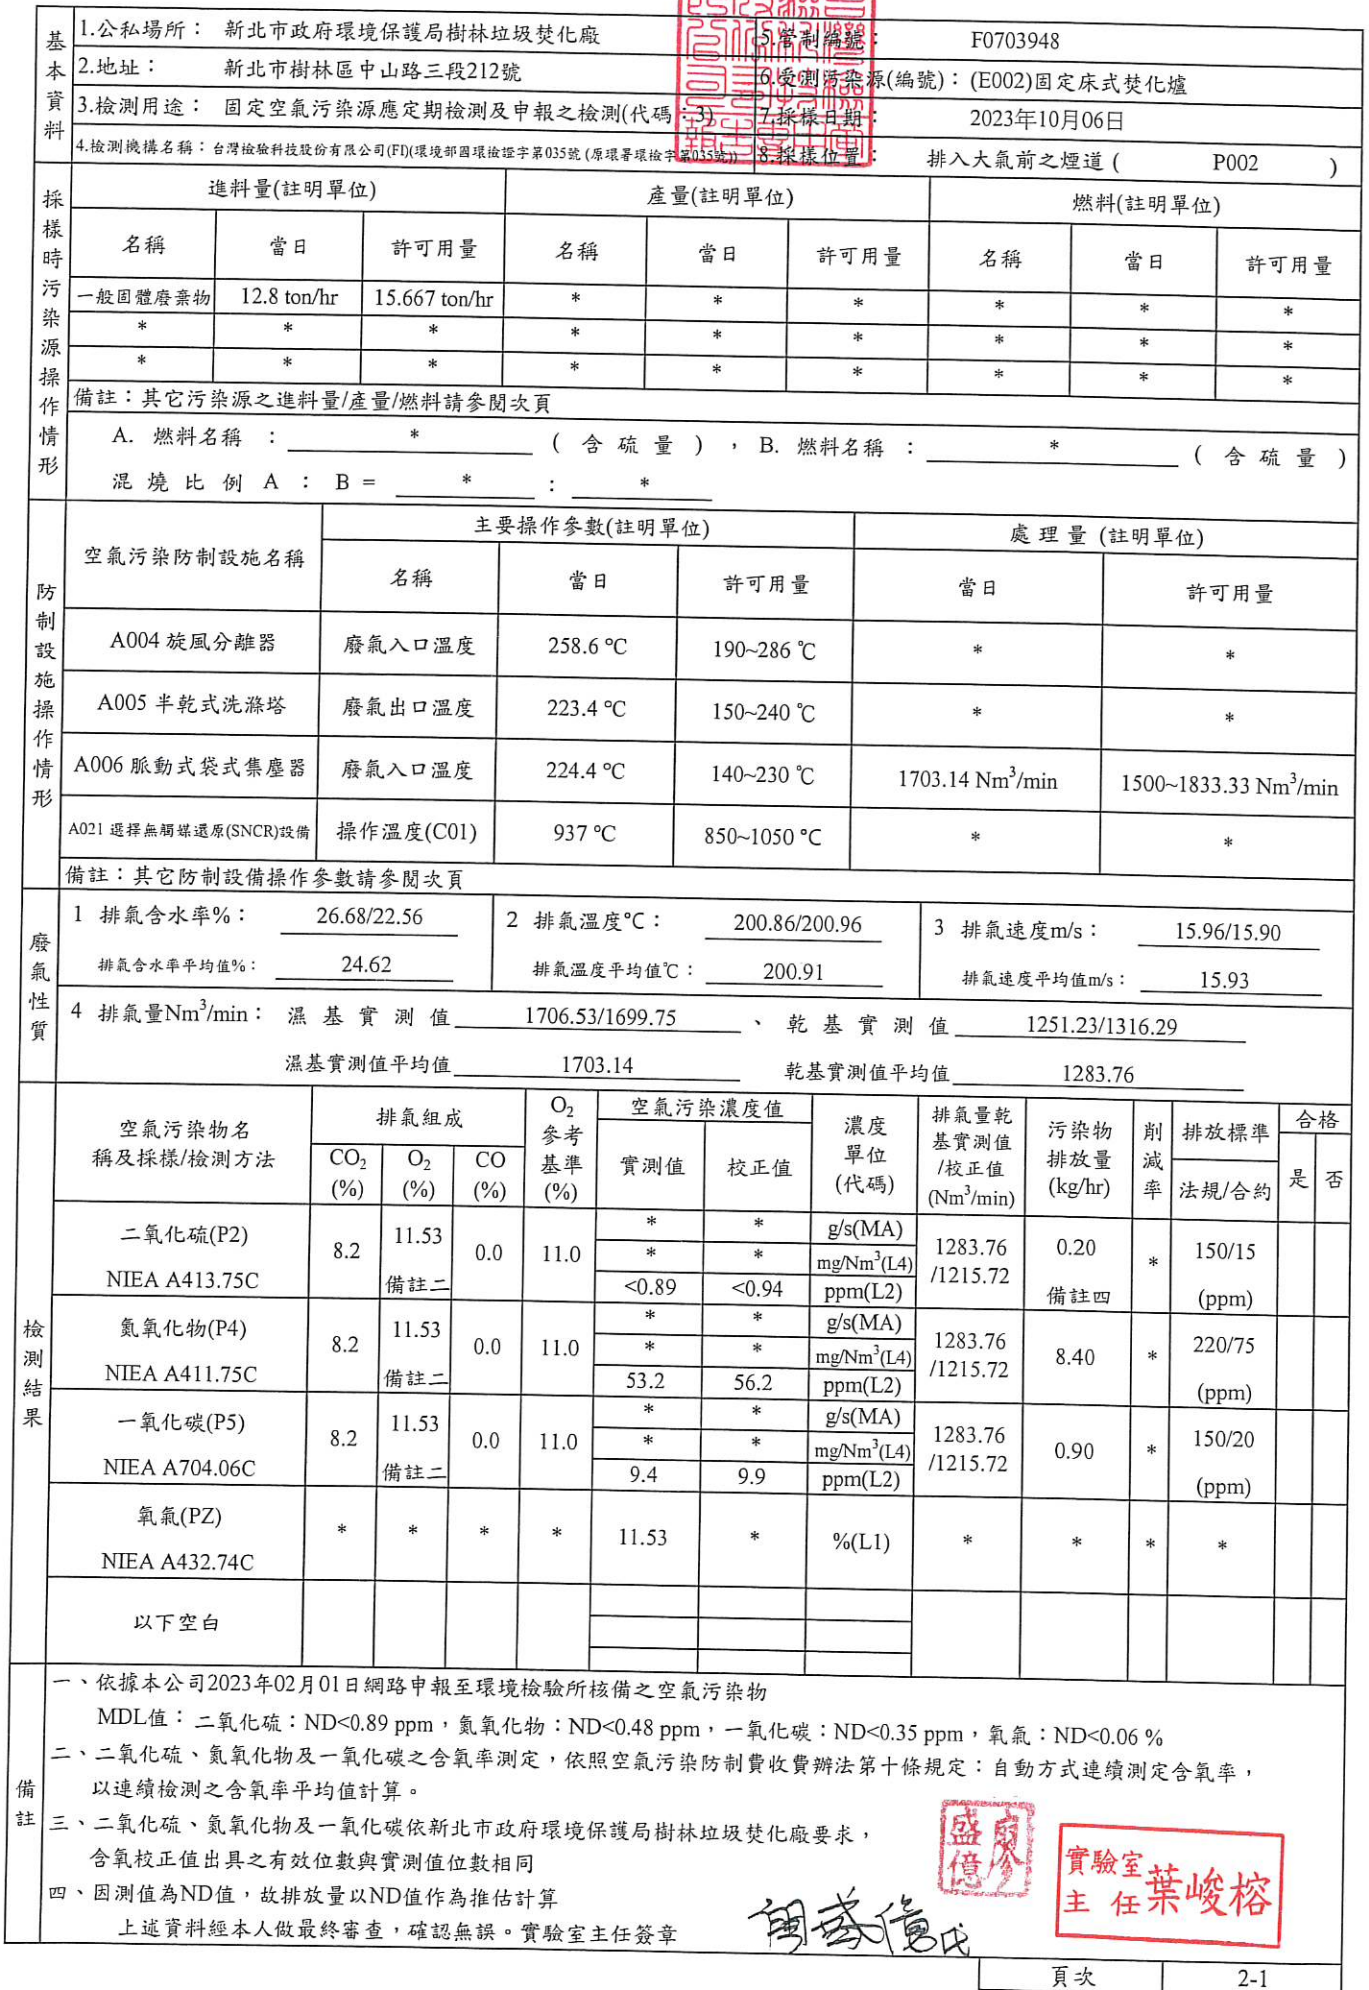 基本資料
1.公私場所： 新北市政府環境保護局樹林垃圾焚化廠 5.管制編號： F0703948
2.地址： 新北市樹林區中山路三段212號 6.受測污染源(編號)：(E002)固定床式焚化爐
3.檢測用途： 固定空氣污染源應定期檢測及申報之檢測(代碼：3) 7.採樣日期： 2023年10月06日
4.檢測機構名稱：台灣檢驗科技股份有限公司(FI)(環境部國環檢證字第035號 (原環署環檢字第035號)) 8.採樣位置： 排入大氣前之煙道 ( P002 )
採樣時污染源操作情形
進料量(註明單位) 產量(註明單位) 燃料(註明單位)
名稱 當日 許可用量 名稱 當日 許可用量 名稱 當日 許可用量
一般固體廢棄物 12.8 ton/hr 15.667 ton/hr * * * * * *
* * * * * * * * *
* * * * * * * * *
備註：其它污染源之進料量/產量/燃料請參閱次頁
A. 燃料名稱 ： * ( 含 硫 量 ) ，B. 燃料名稱 ： * ( 含 硫 量 )
混 燒 比 例 A ： B = * ： *
防制設施操作情形
空氣污染防制設施名稱 主要操作參數(註明單位) 處 理 量 (註明單位)
名稱 當日 許可用量 當日 許可用量
A004 旋風分離器 廢氣入口溫度 258.6 ℃ 190~286 ℃ * *
A005 半乾式洗滌塔 廢氣出口溫度 223.4 ℃ 150~240 ℃ * *
A006 脈動式袋式集塵器 廢氣入口溫度 224.4 ℃ 140~230 ℃ 1703.14 Nm³/min 1500~1833.33 Nm³/min
A021 選擇無觸媒還原(SNCR)設備 操作溫度(C01) 937 ℃ 850~1050 ℃ * *
備註：其它防制設備操作參數請參閱次頁
廢氣性質
1 排氣含水率%： 26.68/22.56 2 排氣溫度℃： 200.86/200.96 3 排氣速度m/s： 15.96/15.90
排氣含水率平均值%： 24.62 排氣溫度平均值℃： 200.91 排氣速度平均值m/s： 15.93
4 排氣量Nm³/min： 濕 基 實 測 值 1706.53/1699.75 、 乾 基 實 測 值 1251.23/1316.29
濕基實測值平均值 1703.14 乾基實測值平均值 1283.76
檢測結果
空氣污染物名稱及採樣/檢測方法 排氣組成 O₂參考基準(%) 空氣污染濃度值 濃度單位(代碼) 排氣量乾基實測值/校正值(Nm³/min) 污染物排放量(kg/hr) 削減率 排放標準 合格
CO₂(%) O₂(%) CO(%) 實測值 校正值 法規/合約 是 否
二氧化硫(P2) NIEA A413.75C 8.2 11.53 備註二 0.0 11.0 * * g/s(MA) 1283.76/1215.72 0.20 備註四 * 150/15 (ppm)
* * mg/Nm³(L4)
<0.89 <0.94 ppm(L2)
氮氧化物(P4) NIEA A411.75C 8.2 11.53 備註二 0.0 11.0 * * g/s(MA) 1283.76/1215.72 8.40 * 220/75 (ppm)
* * mg/Nm³(L4)
53.2 56.2 ppm(L2)
一氧化碳(P5) NIEA A704.06C 8.2 11.53 備註二 0.0 11.0 * * g/s(MA) 1283.76/1215.72 0.90 * 150/20 (ppm)
* * mg/Nm³(L4)
9.4 9.9 ppm(L2)
氧氣(PZ) NIEA A432.74C * * * * 11.53 * %(L1) * * * *
以下空白
備註
一、依據本公司2023年02月01日網路申報至環境檢驗所核備之空氣污染物
MDL值：二氧化硫：ND<0.89 ppm，氮氧化物：ND<0.48 ppm，一氧化碳：ND<0.35 ppm，氧氣：ND<0.06 %
二、二氧化硫、氮氧化物及一氧化碳之含氧率測定，依照空氣污染防制費收費辦法第十條規定：自動方式連續測定含氧率，
以連續檢測之含氧率平均值計算。
三、二氧化硫、氮氧化物及一氧化碳依新北市政府環境保護局樹林垃圾焚化廠要求，
含氧校正值出具之有效位數與實測值位數相同
四、因測值為ND值，故排放量以ND值作為推估計算
上述資料經本人做最終審查，確認無誤。實驗室主任簽章
盛億
實驗室主任 葉峻榕
頁次 2-1